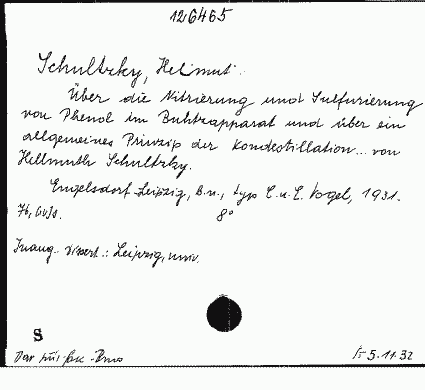 126465
Schultzky, Helmut
Über die Nitrierung und Sulfurierung
von Phenol im Buhtzapparat und über ein
allgemeines Prinzip der Kondestillation... von
Hellmuth Schultzky.
Engelsdorf-Leipzig, B.n., typ C. u. E. Vogel, 1931.
76, S. 8°
Inaug. Dissert.: Leipzig, univ.
S
Dar 5.11.32